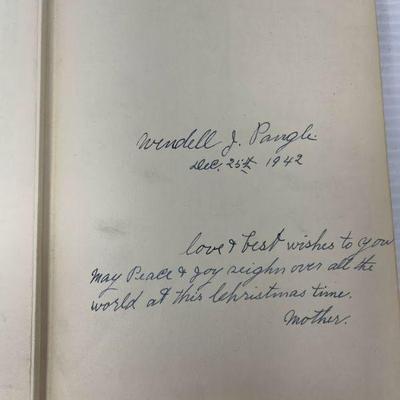 Wendell J. Pangle
Dec. 25th 1942
love & best wishes to you
May Peace & Joy reighn over all the
world at this Christmas time.
Mother.